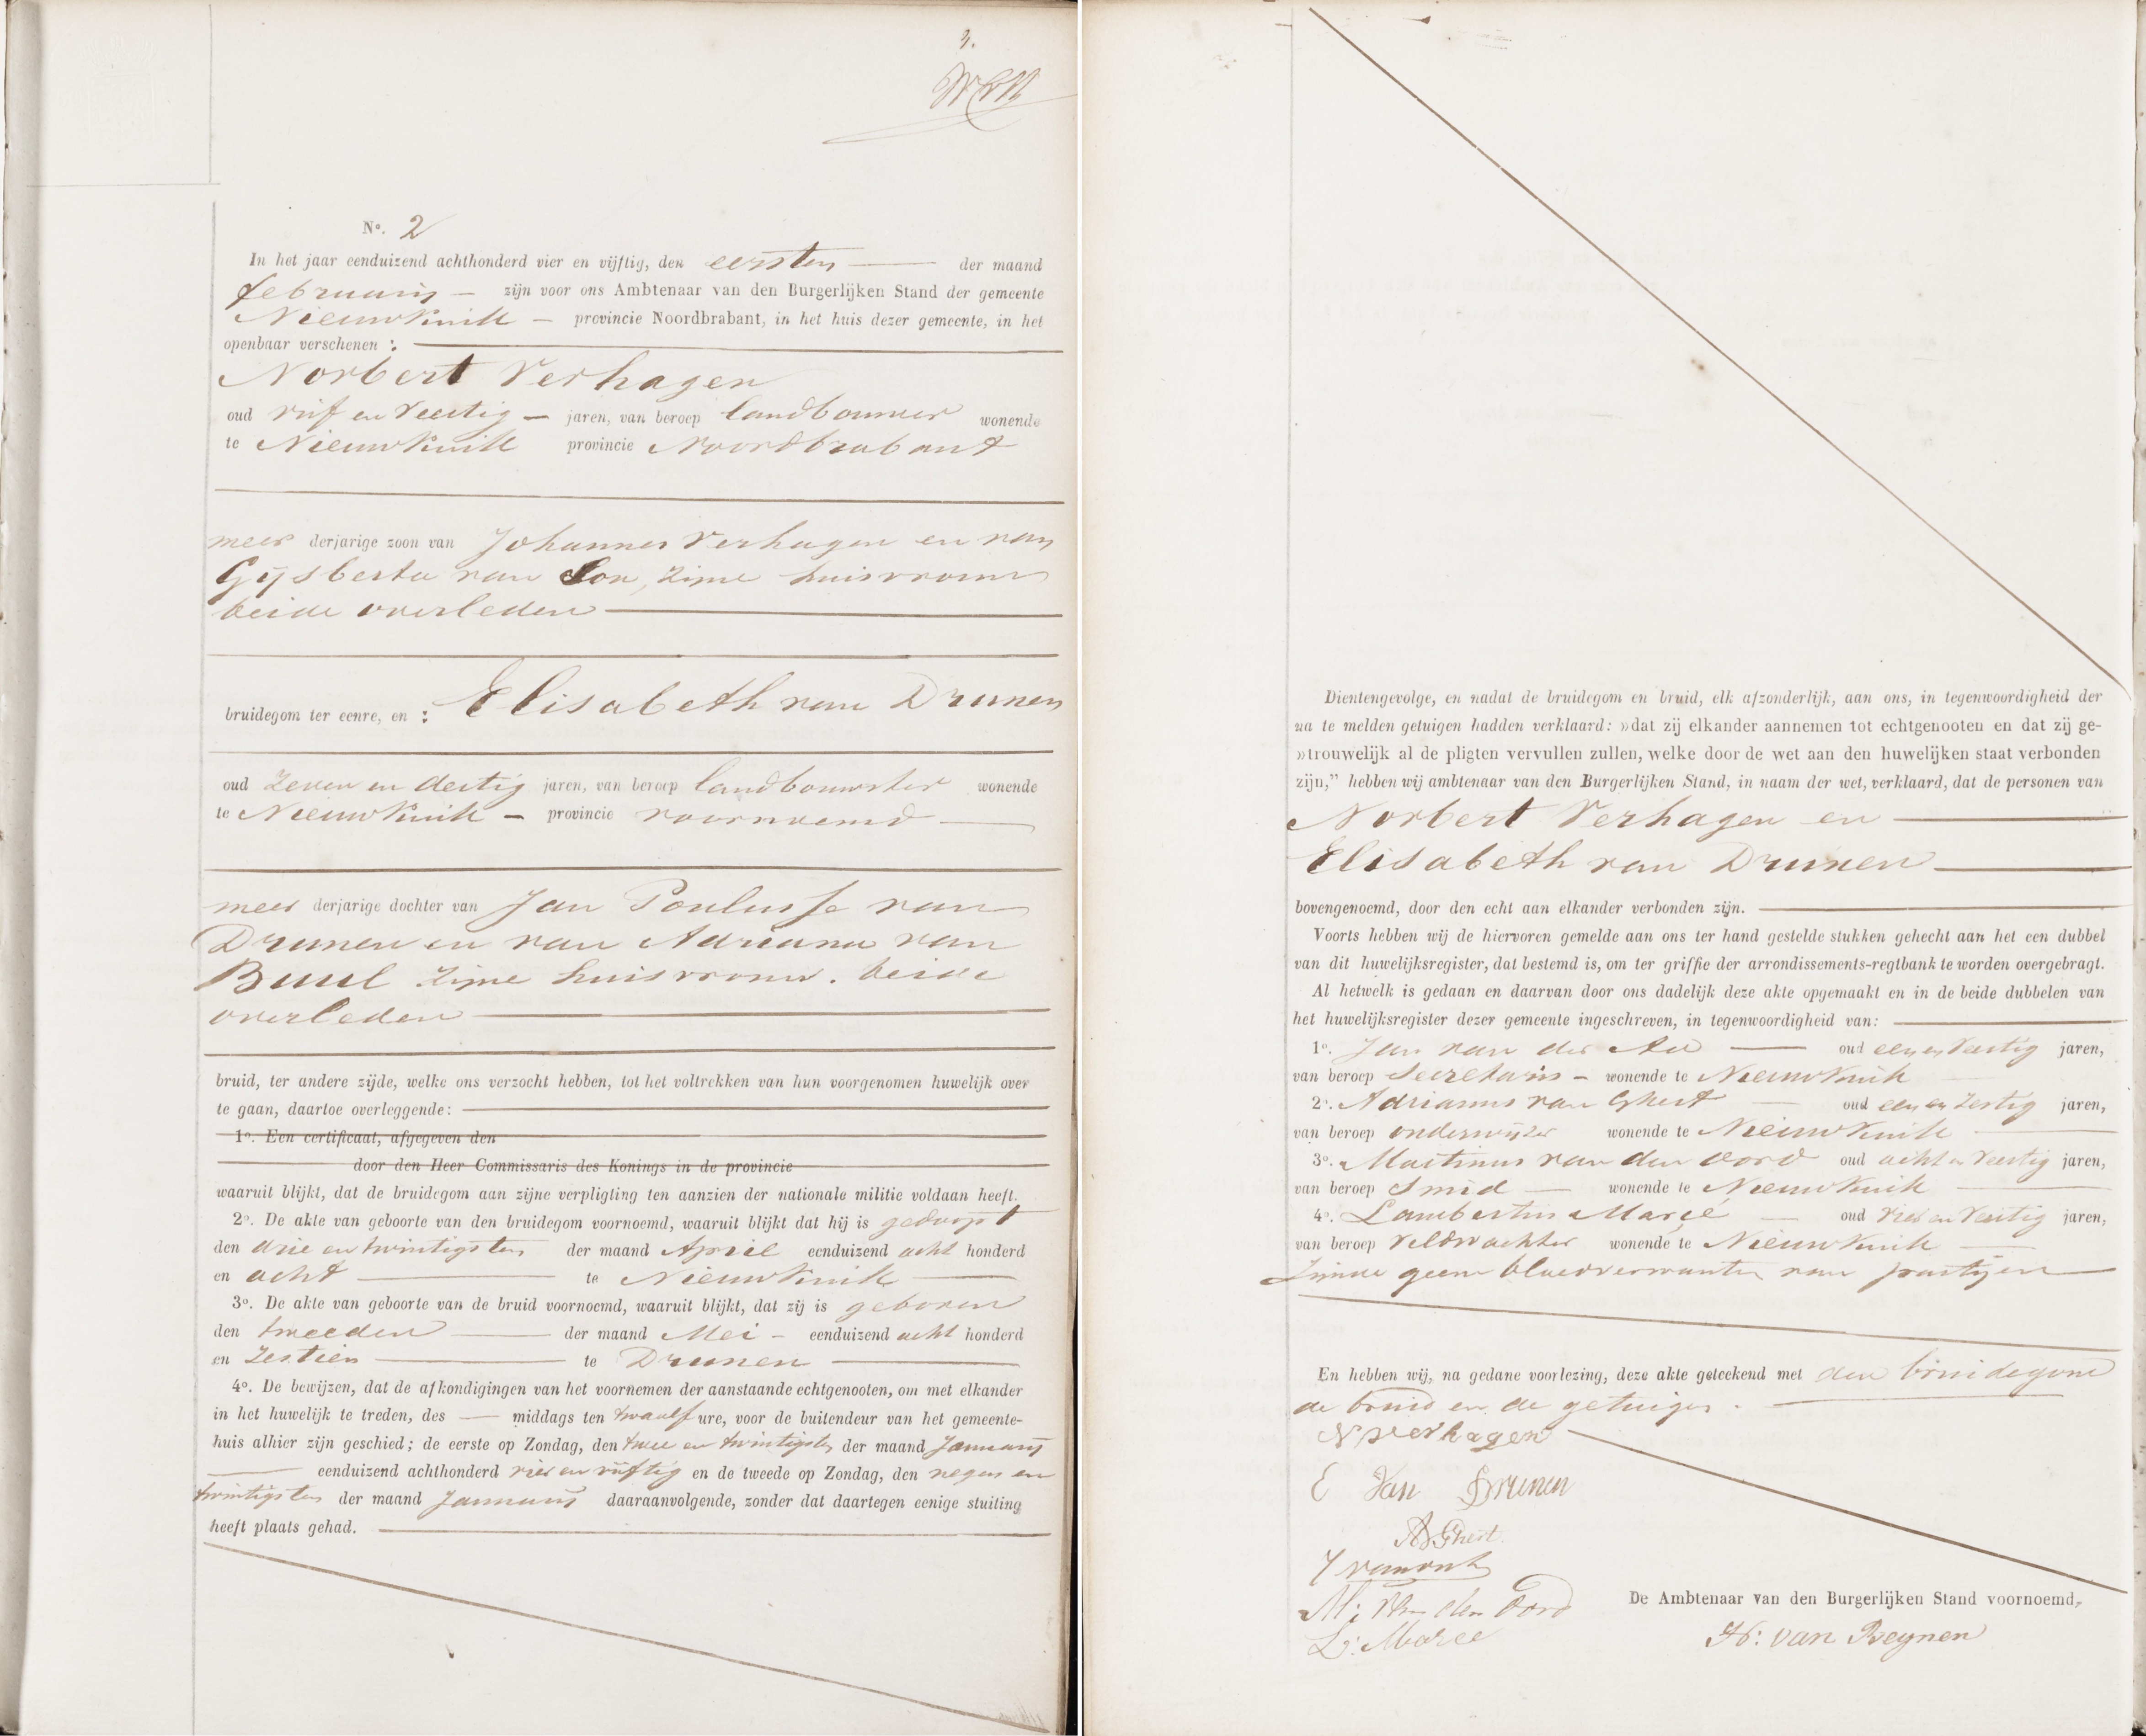 3.
No. 2
In het jaar eenduizend achthonderd vier en vijftig, den eersten der maand
februarij zijn voor ons Ambtenaar van den Burgerlijken Stand der gemeente
Nieuwkuik provincie Noordbrabant, in het huis dezer gemeente, in het
openbaar verschenen :
Norbert Verhagen
oud vijf en Veertig jaren, van beroep landbouwer wonende
te Nieuwkuik provincie Noordbrabant
meer derjarige zoon van Johannes Verhagen en van
Gijsberta van Son, zijne huisvrouw
beide overleden
bruidegom ter eenre, en : Elisabeth van Drunen
oud Zeven en dertig jaren, van beroep landbouwster wonende
te Nieuwkuik provincie voornoemd
meer derjarige dochter van Jan Poulusse van
Drunen en van Adriana van
Buul zijne huisvrouw. beide
overleden
bruid, ter andere zijde, welke ons verzocht hebben, tot het voltrekken van hun voorgenomen huwelijk over
te gaan, daartoe overleggende:
1o. Een certificaat, afgegeven den
door den Heer Commissaris des Konings in de provincie
waaruit blijkt, dat de bruidegom aan zijne verpligting ten aanzien der nationale militie voldaan heeft.
2o. De akte van geboorte van den bruidegom voornoemd, waaruit blijkt dat hij is gedoopt
den drie en twintigsten der maand April eenduizend acht honderd
en acht te Nieuwkuik
3o. De akte van geboorte van de bruid voornoemd, waaruit blijkt, dat zij is geboren
den tweeden der maand Mei eenduizend acht honderd
en Zestien te Drunen
4o. De bewijzen, dat de afkondigingen van het voornemen der aanstaande echtgenooten, om met elkander
in het huwelijk te treden, des middags ten twaalf ure, voor de buitendeur van het gemeente-
huis alhier zijn geschied; de eerste op Zondag, den twee en twintigsten der maand Januarij
eenduizend achthonderd vier en vijftig en de tweede op Zondag, den negen en
twintigsten der maand Januarij daaraanvolgende, zonder dat daartegen eenige stuiting
heeft plaats gehad.
Dientengevolge, en nadat de bruidegom en bruid, elk afzonderlijk, aan ons, in tegenwoordigheid der
na te melden getuigen hadden verklaard: »dat zij elkander aannemen tot echtgenooten en dat zij ge-
»trouwelijk al de pligten vervullen zullen, welke door de wet aan den huwelijken staat verbonden
zijn,” hebben wij ambtenaar van den Burgerlijken Stand, in naam der wet, verklaard, dat de personen van
Norbert Verhagen en
Elisabeth van Drunen
bovengenoemd, door den echt aan elkander verbonden zijn.
Voorts hebben wij de hiervoren gemelde aan ons ter hand gestelde stukken gehecht aan het een dubbel
van dit huwelijksregister, dat bestemd is, om ter griffie der arrondissements-regtbank te worden overgebragt.
Al hetwelk is gedaan en daarvan door ons dadelijk deze akte opgemaakt en in de beide dubbelen van
het huwelijksregister dezer gemeente ingeschreven, in tegenwoordigheid van:
1o. Jan van der Aa oud een en Veertig jaren,
van beroep Secretaris wonende te Nieuwkuik
2o. Adrianus van Ghert oud een en Zestig jaren,
van beroep onderwijzer wonende te Nieuwkuik
3o. Martinus van den Oord oud acht en Veertig jaren,
van beroep Smid wonende te Nieuwkuik
4o. Lambertus Marçé oud vier en Veertig jaren,
van beroep Veldwachter wonende te Nieuwkuik
Zijnde geene bloedverwanten van partijen
En hebben wij, na gedane voorlezing, deze akte geteekend met den bruidegom
de bruid en de getuigen.
N Verhagen
E Van Drunen
AVGhert
M: Van den Oord
L: Marcé
De Ambtenaar van den Burgerlijken Stand voornoemd,
H: van Beijnen